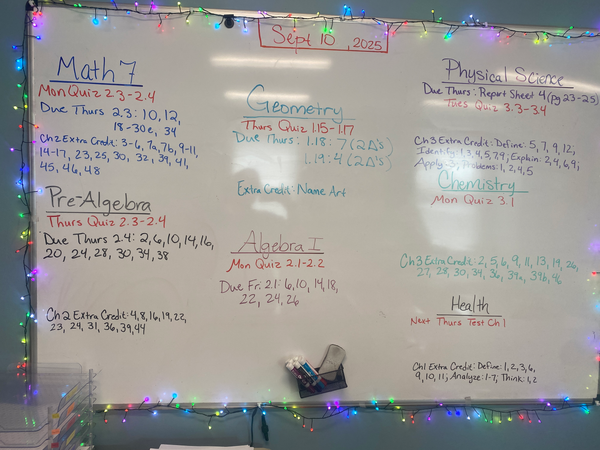 Sept 10, 2025
Math 7
Mon Quiz 2.3-2.4
Due Thurs 2.3: 10, 12,
18-30e, 34
Ch2 Extra Credit: 3-6, 7a, 7b, 9-11,
14-17, 23, 25, 30, 32, 39, 41,
45, 46, 48
Pre-Algebra
Thurs Quiz 2.3-2.4
Due Thurs 2.4: 2, 6, 10, 14, 16,
20, 24, 28, 30, 34, 38
Ch 2 Extra Credit: 4, 8, 16, 19, 22,
23, 24, 31, 36, 39, 44
Geometry
Thurs Quiz 1.15-1.17
Due Thurs: 1.18: 7 (2Δ's)
1.19: 4 (2Δ's)
Extra Credit: Name Art
Algebra I
Mon Quiz 2.1-2.2
Due Fri: 2.1: 6, 10, 14, 18,
22, 24, 26
Physical Science
Due Thurs: Report Sheet 4 (Pg 23-25)
Tues Quiz 3.3-3.4
Ch3 Extra Credit: Define: 5, 7, 9, 12,
Identify: 1, 3, 4, 5, 7, 9; Explain: 2, 4, 6, 9;
Apply: 3; Problems: 1, 2, 4, 5
Chemistry
Mon Quiz 3.1
Ch3 Extra Credit: 2, 5, 6, 9, 11, 13, 19, 26,
27, 28, 30, 34, 36, 39a, 39b, 46
Health
Next Thurs Test Ch 1
Ch1 Extra Credit: Define: 1, 2, 3, 6,
9, 10, 11; Analyze: 1-7; Think: 1, 2